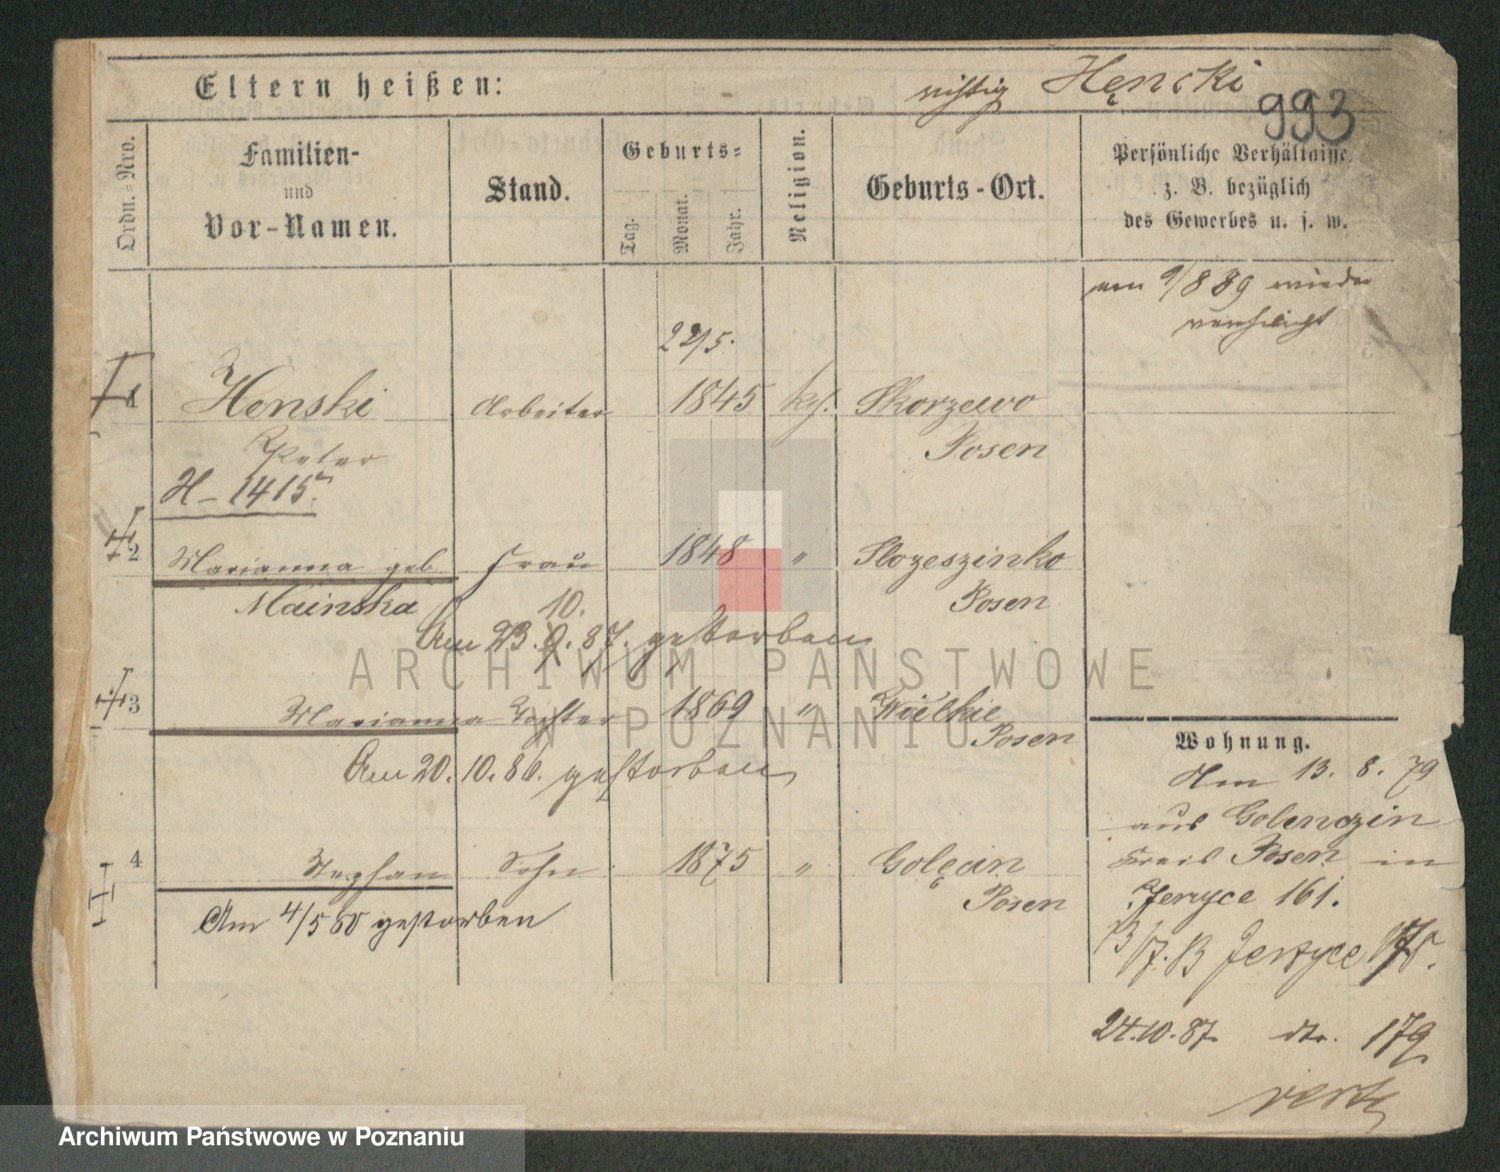 Eltern heißen:
richtig Hęncki
993
Ordn.-Nro.
Familien-
und
Vor-Namen.
Stand.
Geburts-
Tag.
Monat.
Jahr.
Religion.
Geburts-Ort.
Persönliche Verhältnisse
z. B. bezüglich
des Gewerbes u. s. w.
am 9/8 89 wieder
verheir.
22/5.
1 Henski Arbeiter 1845 kath. Skorzewo
Peter Posen
H- 1415
2 Marianna geb Frau 1848 " 
Mainska Posen
10.
Am 23. 9. 87. gestorben
3 Marianna Tochter 1869 " Wielkie
Posen
Am 20. 10. 86. gestorben
4 Stephan Sohn 1875 " Golęcin
Posen
Am 4/5 80 gestorben
Wohnung.
Am 13. 8. 79
aus Golenczin
Kreis Posen in
Jerzyce 161.
Jerzyce
24.10.87 dto. 179
verte
ARCHIWUM PAŃSTWOWE
W POZNANIU
Archiwum Państwowe w Poznaniu